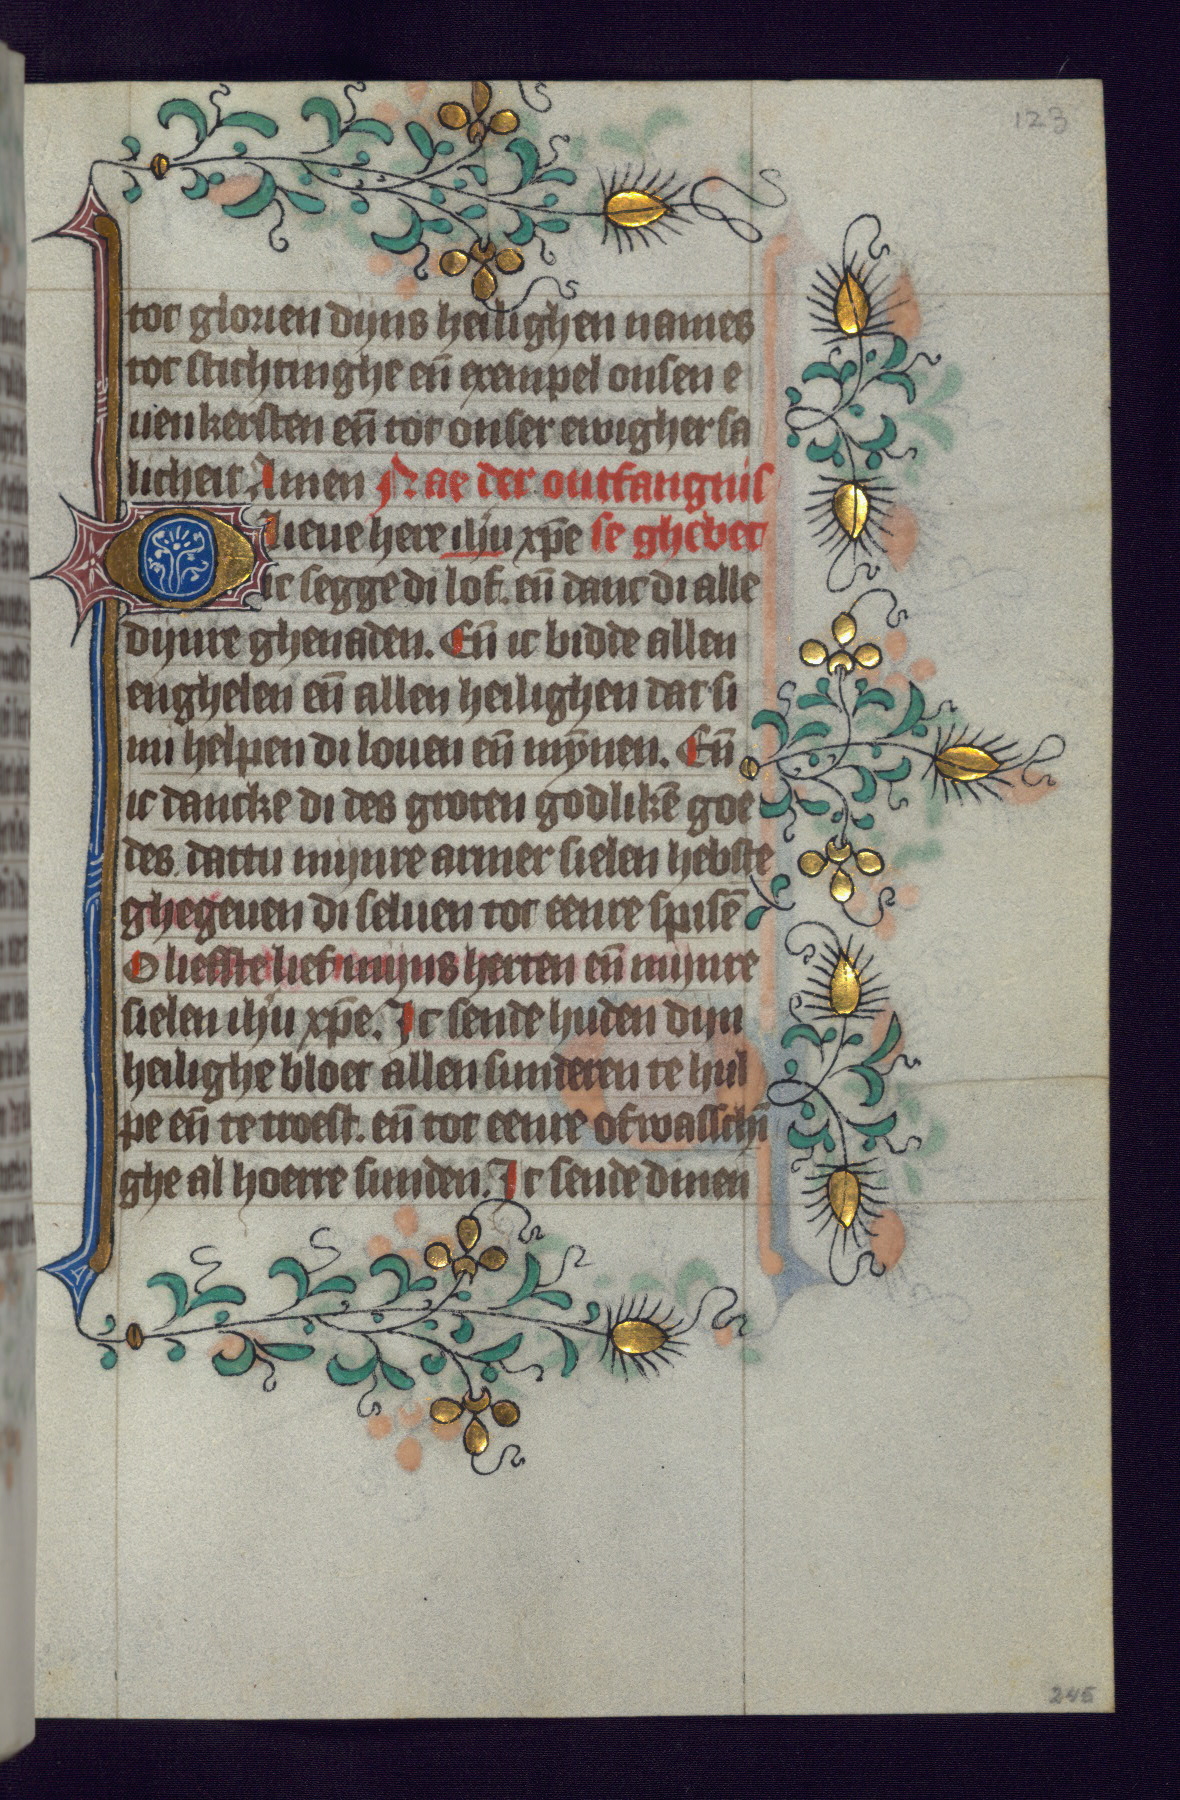 123
tot glorien dijns heilighen names
tot stichtinghe en̄ exempel onsen e
uen kersten en̄ tot onser ewigher sa
licheit Amen Nae der ontfangnis
O lieue here ih̄u xp̄e se ghebet
ic segge di lof. en̄ danc di alle
dijnre ghenaden. En̄ ic bidde allen
enghelen en̄ allen heilighen dat si
mi helpen di louen en̄ mȳnen. En̄
ic dancke di des groten godlikē goe
des. dattu mijnre armer sielen hebste
ghegeuen di seluen tot eenre spisē
O liefste lief mijns herten en̄ mijnre
sielen ih̄u xp̄e. Ic sende huden dijn
heilighe bloet allen sunderen te hul
pe en̄ te troest. en̄ tot eenre ofwasschī
ghe al hoerre sunden. Ic sende dinen
245